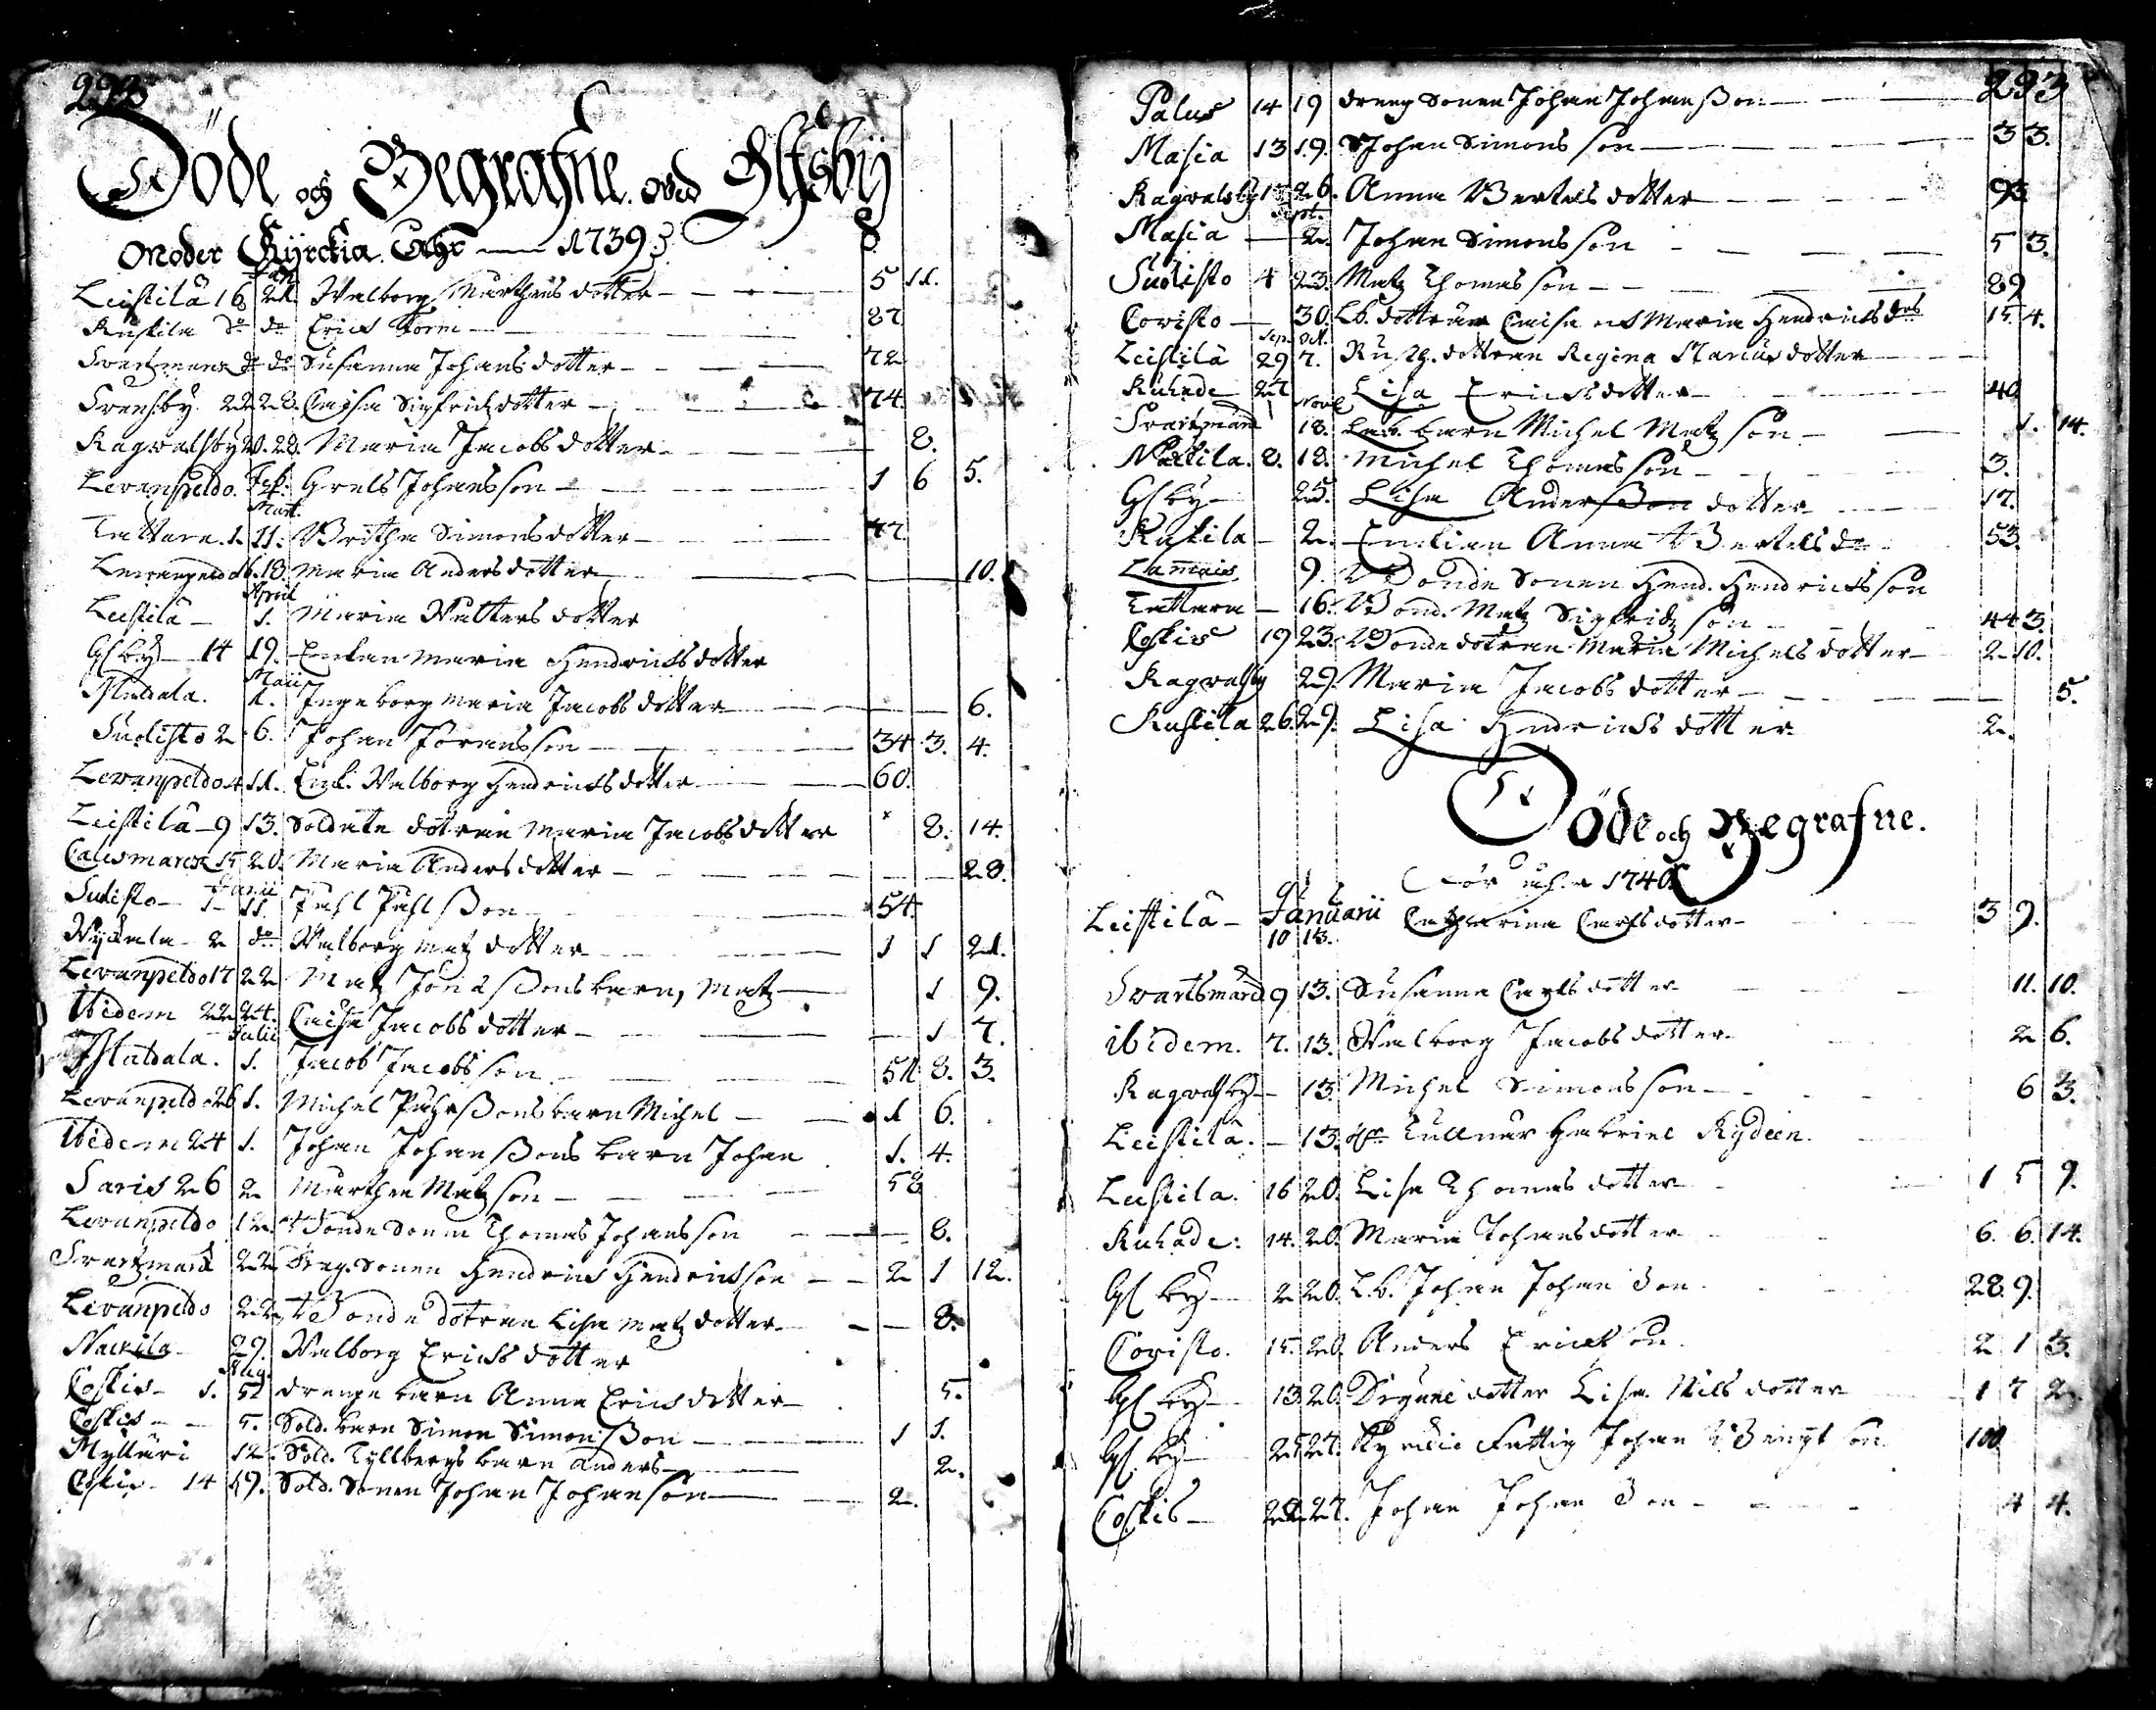 292
Döde och Begrafne. wed Elfsbÿ
Moder Kÿrckia Åhr — 1739
Leistilä 16 Jan 21. Walborg Marthens dotter — 5 11.
Kuskila do do Erick Form — 87
Svartzmarck do do Susanna Johans dotter — 72
Svensby 22 28. Caisa Sigfridz dotter — 74
Ragwalsby 20. 28. Maria Jacobs dotter — 8.
Levanpeldo. Feb: Grels Johansson — 1 6 5.
Mart.
Tattara. 1. 11. Britha Simons dotter — 77
Levanpeldo 16. 18. Maria Anders dotter — 10.
April
Leistilä — 1. Maria Walters dotter
Elfby — 14 19. Enkan Maria Hendricks dotter
Maii
Isladala. 1. Ingeborg Maria Jacobs dotter — 6.
Suolisto 2 6. Johan Joransson — 34 3. 4.
Levanpeldo 4 11. Enk. Walborg Hendricks dotter — 60.
Leistilä — 9 13. Soldate dotran Maria Jacobs dotter 8. 14.
Caucsmarck 15 20. Maria Anders dotter — 28.
Junii
Suolisto — 1 11. Påhl Påhlsson — 54.
Wyckala — 2 do Walborg Matz dotter — 1 1 21.
Levanpeldo 17 22 Matz Jonässons barn, Matz — 1 9.
Ibidem 22 24. Caisa Jacobs dotter — 1 7.
Julii
Isladala. 1. Jacob Jacobsson — 51 8. 3.
Levanpeldo 26 1. Michel Påhrssons barn Michel — 1 6.
Ibidem 24 1. Johan Johanssons barn Johan 1. 4.
Saris 26 2 Marthen Matzson — 58
Levanpeldo 12. Bonde Sonen Thomas Johansson — 8.
Svartzmarck 22 Dreng. Sonen Hendrick Hendricksson — 2 1 12.
Levanpeldo 22 Bonde dotran Lisa Matz dotter — 8.
Nackila 29. Walborg Ericks dotter
Aug.
Coskis — 1. 5 drenge barn Anna Ericks dotter — 5.
Coskis — 5. Sold. barn Simon Simonsson — 1 1.
Myllari 12. Sold. Tyllbergs barn Anders — 2.
Coskis — 14 19. Sold. Sonen Johan Johansson — 2.
293
Palus 14 19 dreng Sonen Johan Johansson —
Masia 13 19. Johan Simonsson — 3 3.
Ragvalsby 17 26. Anna Bertels dotter — 93
Sept.
Masia — 2. Johan Simonsson — 5 3.
Suolisto 4 23. Matz Thomasson — 89
Covisto — 30. Lb. dottrar Caisa och Maria Hendricks drs 15. 4.
Sep. Oct.
Leistilä 29 7. Rustg. dottran Regina Starcus dotter —
Ruhade 27 Lisa Ericks dotter — 40
Nove
Svartzmarck 18. Lab. barn Michel Matzson — 1. 14.
Nackila. 8. 18. Michel Thomasson — 3.
Elfby — 25. Lisa Anders dotter — 17.
Kuskila — 2. Enckian Anna Bertels dr 53.
Lammais 9. Bonde Sonen Hend. Hendricksson
Tattara — 16. Bond. Matz Sigfridzson — 44 3.
Coskis 19 23. Bonde dotran Maria Michels dotter — 2 10.
Ragwalsby 29. Maria Jacobs dotter — 5.
Kuskila 26. 29. Lisa Hendricks dotter 2.
Döde och Begrafne.
För åhr 1740
Leistilä — Januarii Catharina Carls dotter — 3 9.
10 13.
Svartsmarck 9 13. Susanna Carls dotter 11. 10.
ibidem. 7. 13. Walborg Jacobs dotter 2 6.
Ragvalsby — 13. Michel Simonsson — 6 3.
Leistilä. — 13. Tullnär Gabriel Rydeen.
Leistila. 16 20. Lisa Thomas dotter 1 5 9.
Ruhade: 14. 20. Maria Johans dotter 6. 6. 14.
Elfby — 2 20. L.b. Johan Johanson 28 9.
Covisto. 15. 20. Anders Erickson 2 1 3.
Elfby — 13 20. Drgune dotter Lisa Nils dotter 1 7 2.
Elfby — 25 27. Kyrckio Fattig Johan Bengtson 100
Coskis — 22 27. Johan Johanson — 4 4.